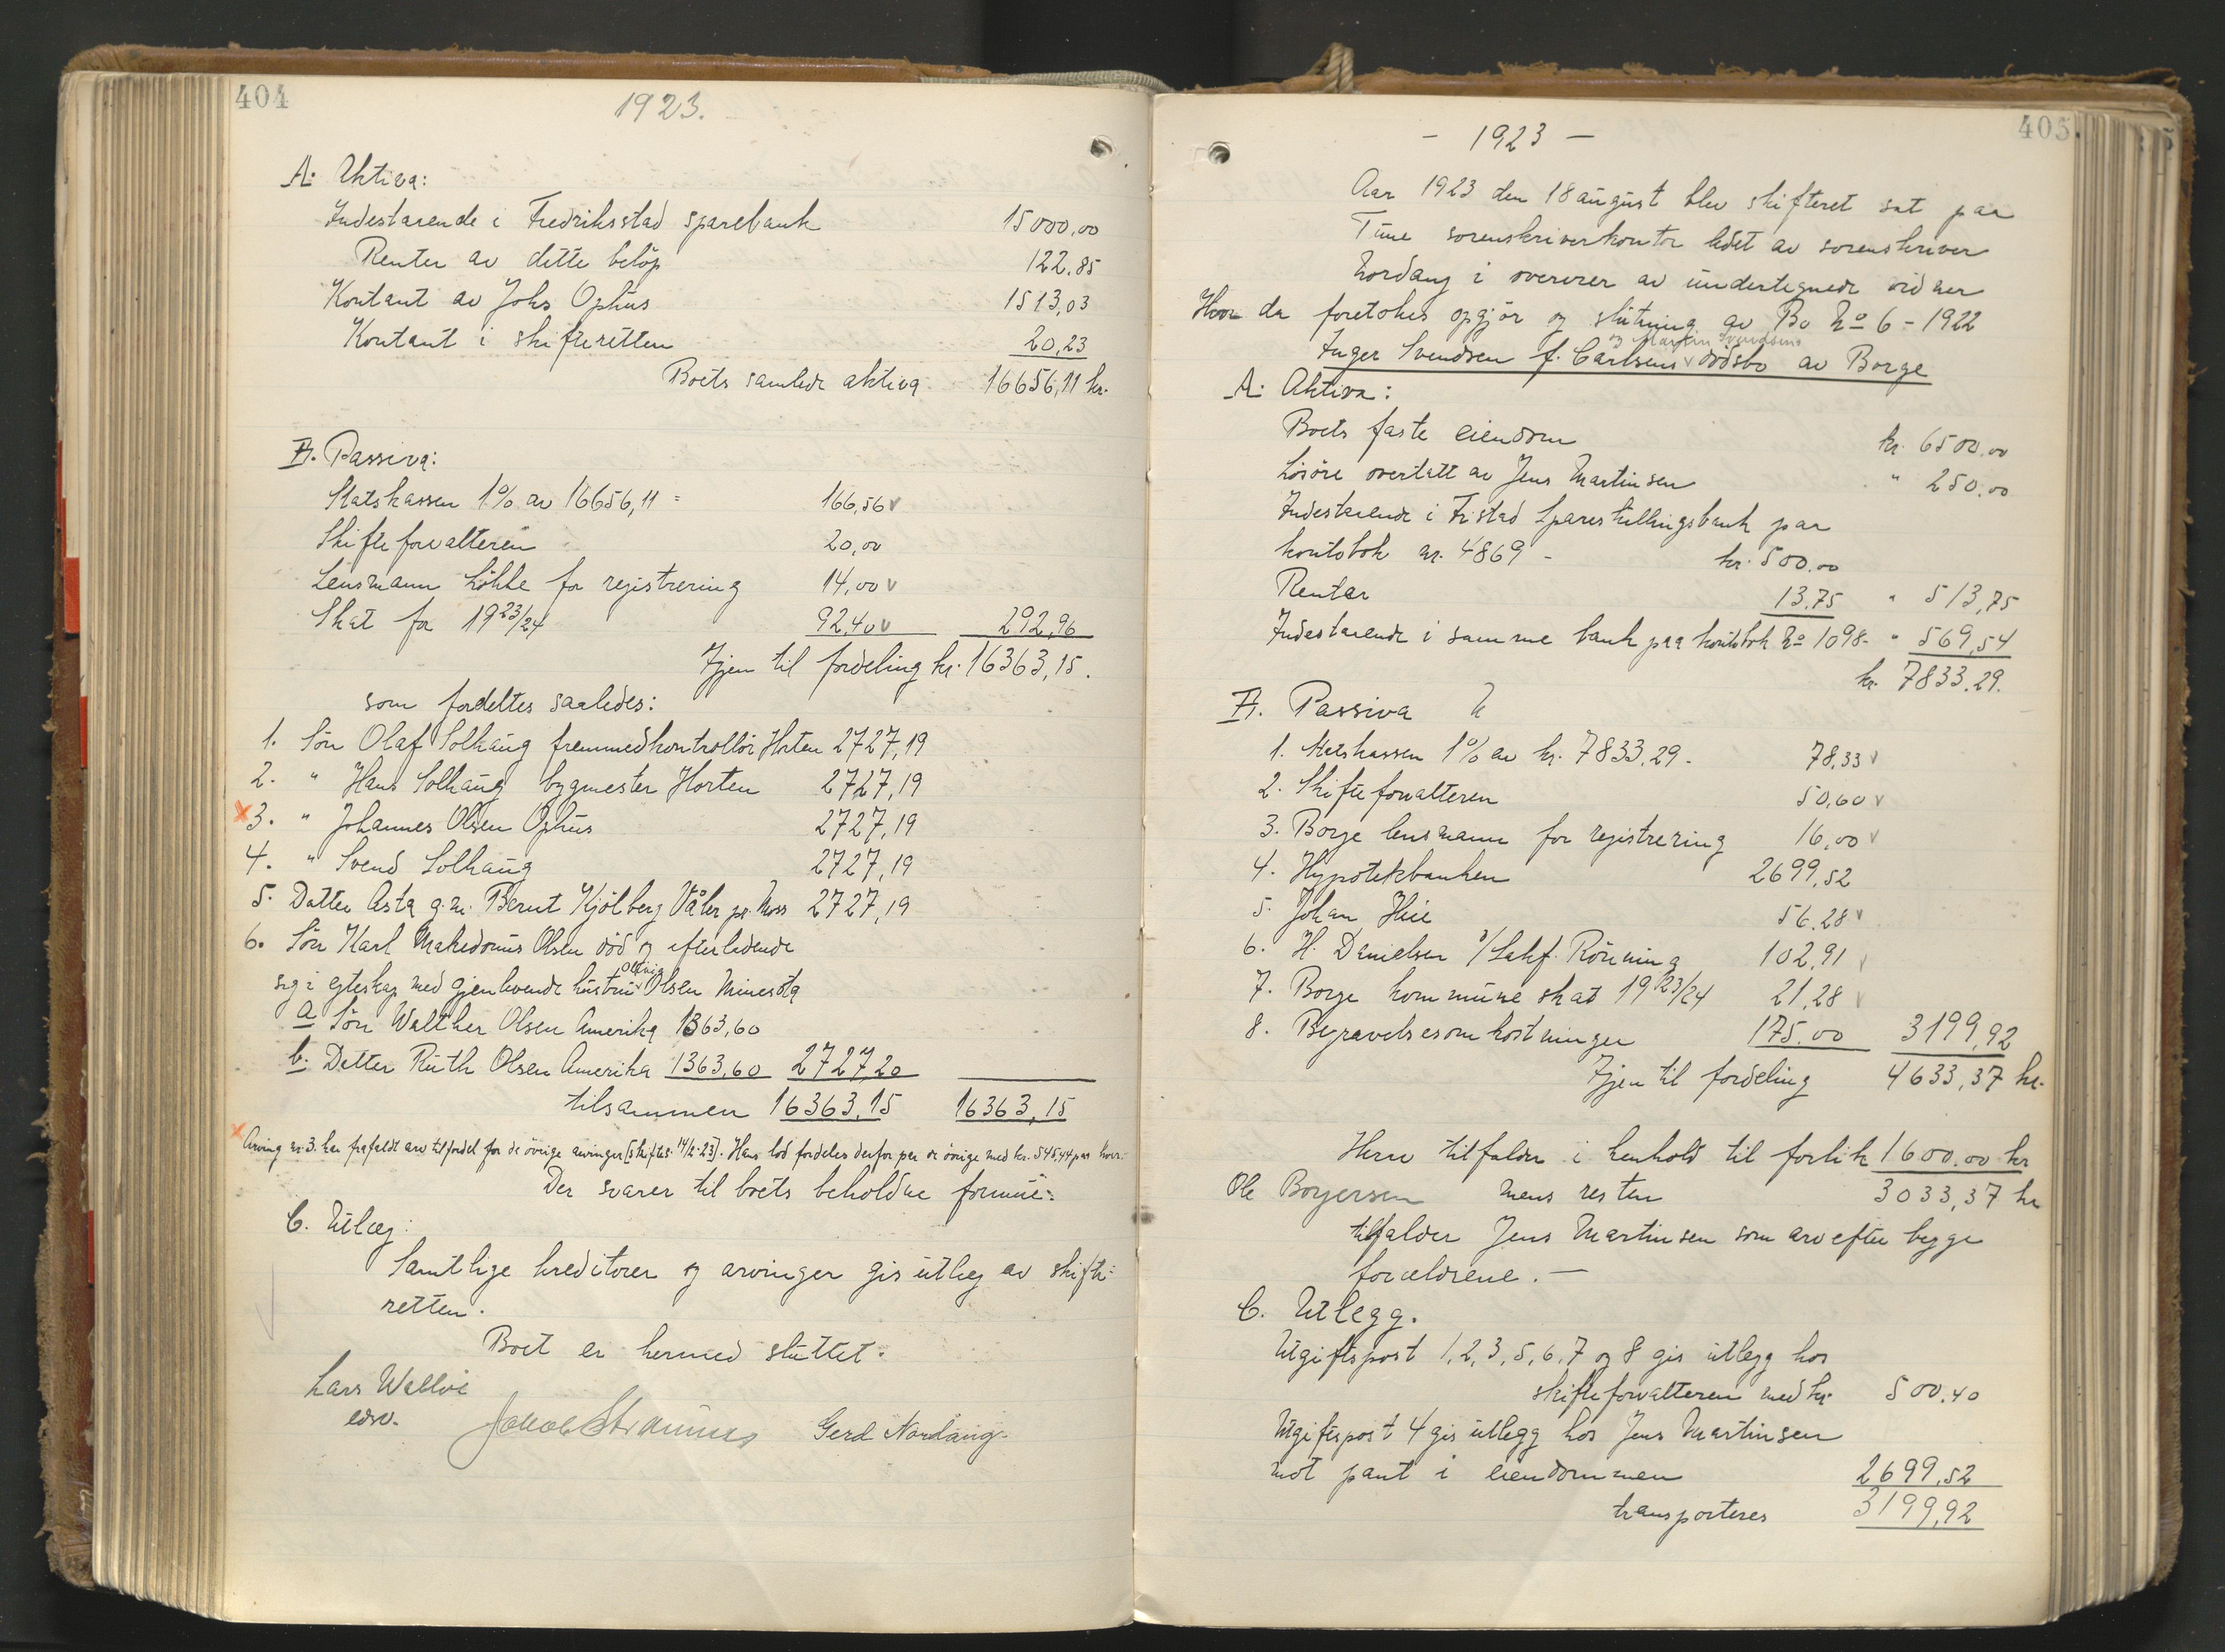 404
1923.
A. Aktiva:
Indestaaende i Fredriksstad sparebank 15000,00
Renter av dette beløp 122.85
Kontant av Johs Ophus 1513,03
Kontant i skifteretten 20,23
Boets samlede aktiva 16656,11 kr.
B. Passiva:
Statskassen 1% av 16656,11 = 166,56 v
Skifteforvalteren 20,00
Lensmann Løkke for registrering 14,00 v
Skat for 1923/24 92,40 v 292,96
Igjen til fordeling kr. 16363,15.
som fordeltes saaledes:
1. Søn Olaf Solhaug fremmedkontrollør Horten 2727,19
2. " Hans Solhaug bygmester Horten 2727,19
x 3. " Johannes Olsen Ophus 2727,19
4. " Svend Solhaug 2727,19
5. Datter Asta g.m. Bernt Kjølberg Våler pr. Moss 2727,19
6. Søn Karl Makedonius Olsen død og efterladende
sig i egteskap med gjenlevende hustru Olsen Minesota
a Søn Walther Olsen Amerika 1363,60
b. Datter Ruth Olsen Amerika 1363,60 2727,20
tilsammen 16363,15 16363,15
x Arving nr. 3. har frafaldt arv til fordel for de øvrige arvinger [skiftes. 14/2-23]. Hans lod fordeles derfor paa de øvrige med kr. 545,44 paa hver.
Der svarer til boets beholdne formue.
C. Utlæg:
Samtlige kreditorer og arvinger gis utlæg av skifte-
retten.
Boet er hermed sluttet.
Lars Wallöe
edsv. Gerd Nordang.
405.
- 1923 -
Aar 1923 den 18 august blev skifteret sat paa
Tune sorenskriverkontor ledet av sorenskriver
Nordang i overvær av undertegnede vidner
Hvor da foretokes opgjør og slutning av Bo No 6 - 1922
og Martin Svendsens
Inger Svendsen f. Carlsens v dødsbo av Borge
A. Aktiva:
Boets faste eiendom kr. 6500.00
Løsøre overtatt av Jens Martinsen " 250.00
Indestaaende i Fr.stad Spareskillingsbank paa
kontobok nr. 4869 - kr. 500.00
Renter 13,75 " 513,75
Indestaaende i samme bank paa kontobok No 1098- " 569,54
kr. 7833.29.
B. Passiva
1. Statskassen 1% av kr. 7833.29. 78,33 v
2. Skifteforvalteren 50,60 v
3. Borge lensmann for registrering 16,00 v
4. Hypotekbanken 2699,52
5. Johan Hiie 56.28 v
6. H. Danielsen v/ Sakf. Rönning 102.91 v
7. Borge kommune skat 1923/24 21,28 v
8. Begravelsesomkostninger 175.00 3199,92
Igjen til fordeling 4633,37 kr.
Herav tilfalder i henhold til forlik 1600.00 kr
Ole Borgersen mens resten 3033,37 kr
tilfalder Jens Martinsen som arv efter begge
forældrene. -
C. Utlegg.
Utgiftspost 1,2,3,5,6,7 og 8 gis utlegg hos
skifteforvalteren med kr. 500.40
Utgiftspost 4 gis utlegg hos Jens Martinsen
mot pant i eiendommen 2699,52
transporteres 3199,92